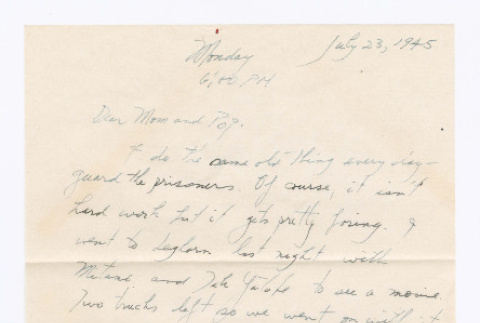 Monday July 23, 1945
6:00 PM
Dear Mom and Pop.
I do the same old thing every day-
guard the prisoners. Of course, it isn't
hard work but it gets pretty boring. I
went to Leghorn last night with
Mitane and Tak to see a movie.
Two trucks left so we went on with it